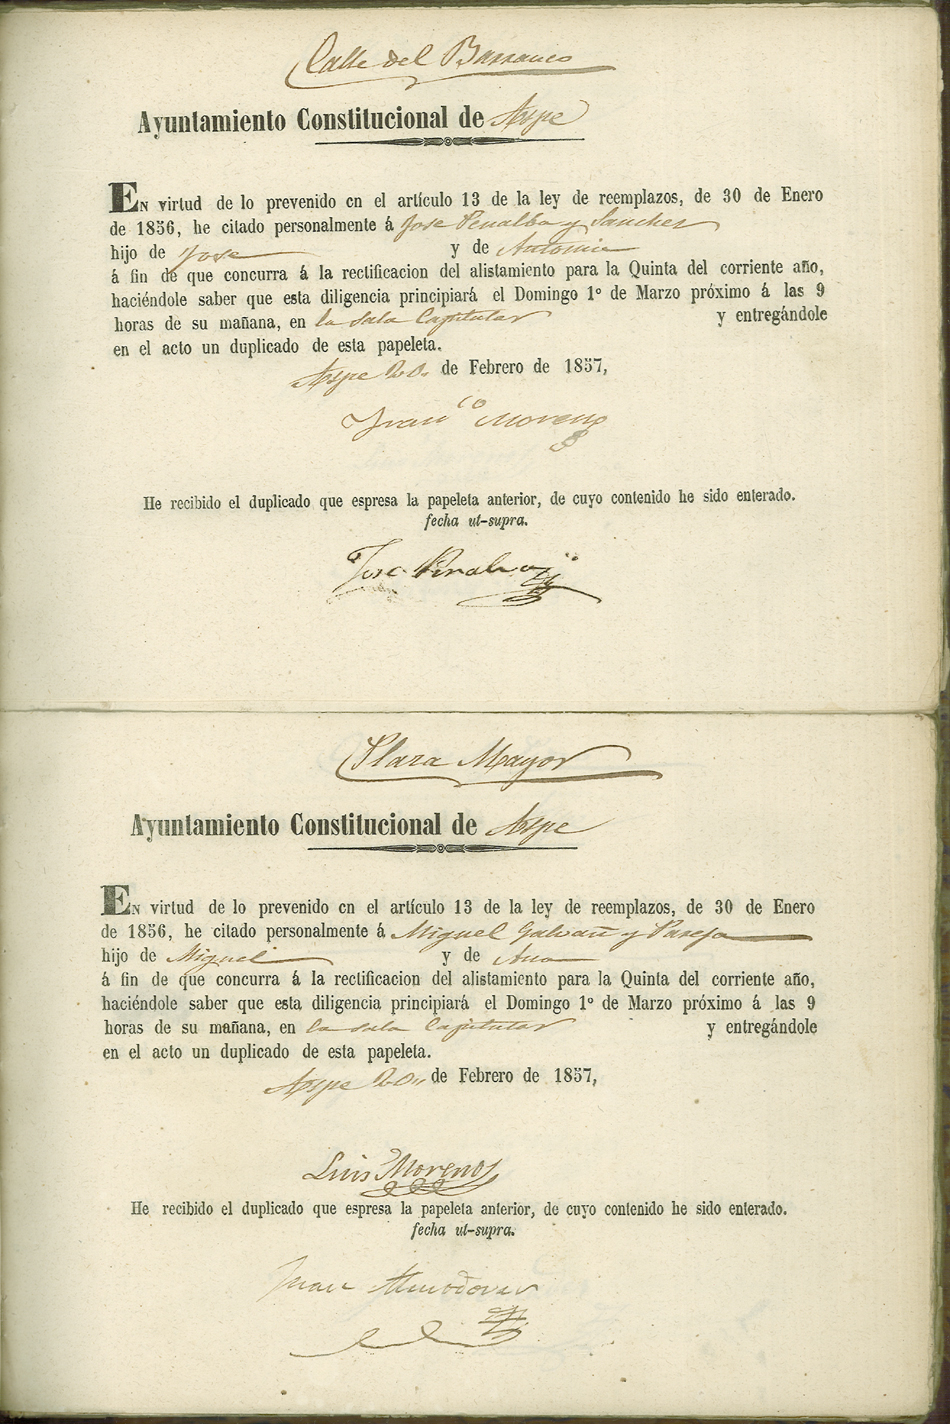 Calle del Barranco
Ayuntamiento Constitucional de Aspe
EN virtud de lo prevenido en el artículo 13 de la ley de reemplazos, de 30 de Enero
de 1856, he citado personalmente á Jose Penalba y Sanchez
hijo de Jose y de Antonia
á fin de que concurra á la rectificacion del alistamiento para la Quinta del corriente año,
haciéndole saber que esta diligencia principiará el Domingo 1º de Marzo próximo á las 9
horas de su mañana, en la sala Capitular y entregándole
en el acto un duplicado de esta papeleta.
Aspe 20 de Febrero de 1857,
Franco Moreno
He recibido el duplicado que espresa la papeleta anterior, de cuyo contenido he sido enterado.
fecha ut-supra.
Jose Penalva
Plaza Mayor
Ayuntamiento Constitucional de Aspe
EN virtud de lo prevenido en el artículo 13 de la ley de reemplazos, de 30 de Enero
de 1856, he citado personalmente á Miguel Galvañ y Pareja
hijo de Miguel y de Ana
á fin de que concurra á la rectificacion del alistamiento para la Quinta del corriente año,
haciéndole saber que esta diligencia principiará el Domingo 1º de Marzo próximo á las 9
horas de su mañana, en la sala Capitular y entregándole
en el acto un duplicado de esta papeleta.
Aspe 20 de Febrero de 1857,
Luis Moreno
He recibido el duplicado que espresa la papeleta anterior, de cuyo contenido he sido enterado.
fecha ut-supra.
Juan Almodovar